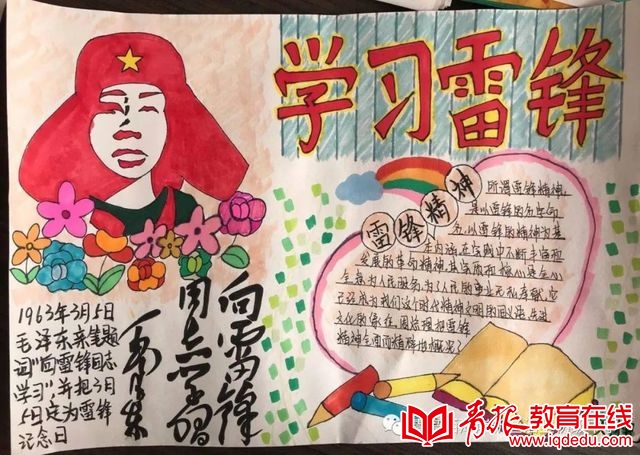 学习雷锋
雷锋精神
所谓雷锋精神,
是以雷锋的名字命
名,以雷锋的精神为基
本内涵,在实践中不断丰富和
发展的革命精神,其实质和核心是全心
全意为人民服务,为了人民的事业无私奉献,它
已经成为我们这个时代精神文明的同义语、先进
文化的表征,周总理把雷锋
精神全面而精辟地概括
向雷锋
同志学习
毛泽东
1963年3月5日
毛泽东亲笔题
词"向雷锋同志
学习",并把3月
5日定为雷锋
记念日
青报教育在线
www.iqdedu.com